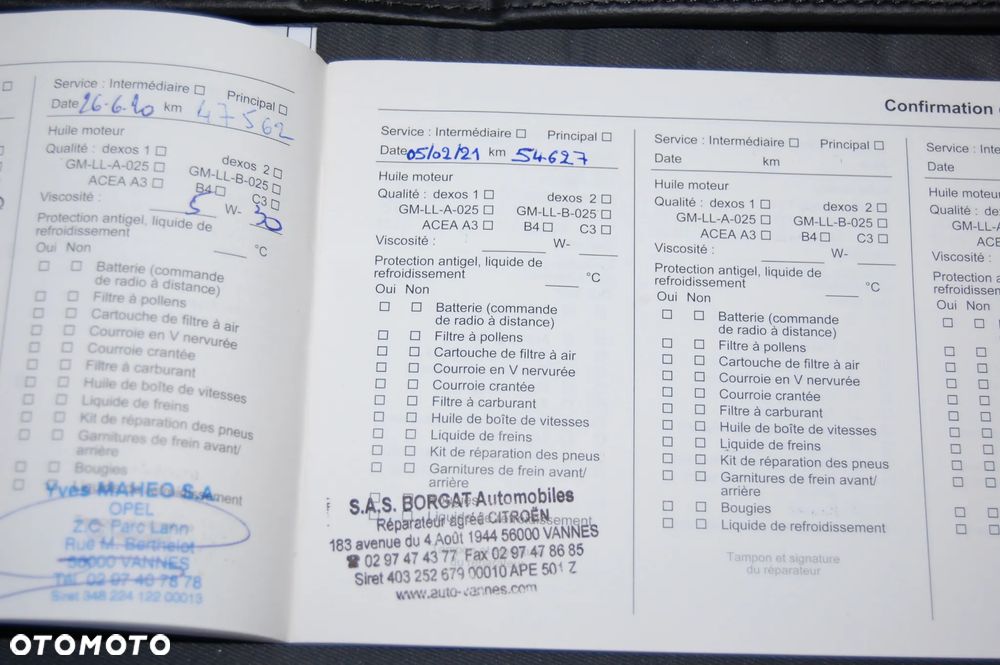 Service : Intermédiaire ☐ Principal ☐
Date 26.6.20 km 47562
Huile moteur
Qualité : dexos 1 ☐ dexos 2 ☐
GM-LL-A-025 ☐ GM-LL-B-025 ☐
ACEA A3 ☐ B4 ☐ C3 ☐
Viscosité : 5 W- 30
Protection antigel, liquide de
refroidissement °C
Oui Non
☐ ☐ Batterie (commande
de radio à distance)
☐ ☐ Filtre à pollens
☐ ☐ Cartouche de filtre à air
☐ ☐ Courroie en V nervurée
☐ ☐ Courroie crantée
☐ ☐ Filtre à carburant
☐ ☐ Huile de boîte de vitesses
☐ ☐ Liquide de freins
☐ ☐ Kit de réparation des pneus
☐ ☐ Garnitures de frein avant/
arrière
☐ ☐ Bougies
Yves MAHEO S.A
OPEL
Z.C. Parc Lann
Rue M. Berthelot
56000 VANNES
Tél. 02 97 40 78 78
Siret 348 224 122 00013
Confirmation
Service : Intermédiaire ☐ Principal ☐
Date 05/02/21 km 54627
Huile moteur
Qualité : dexos 1 ☐ dexos 2 ☐
GM-LL-A-025 ☐ GM-LL-B-025 ☐
ACEA A3 ☐ B4 ☐ C3 ☐
Viscosité : W-
Protection antigel, liquide de
refroidissement °C
Oui Non
☐ ☐ Batterie (commande
de radio à distance)
☐ ☐ Filtre à pollens
☐ ☐ Cartouche de filtre à air
☐ ☐ Courroie en V nervurée
☐ ☐ Courroie crantée
☐ ☐ Filtre à carburant
☐ ☐ Huile de boîte de vitesses
☐ ☐ Liquide de freins
☐ ☐ Kit de réparation des pneus
☐ ☐ Garnitures de frein avant/
arrière
S.A.S. BORGAT Automobiles
Réparateur agréé CITROËN
183 avenue du 4 Août 1944 56000 VANNES
☎ 02 97 47 43 77 Fax 02 97 47 86 85
Siret 403 252 679 00010 APE 501 Z
www.auto-vannes.com
Service : Intermédiaire ☐ Principal ☐
Date km
Huile moteur
Qualité : dexos 1 ☐ dexos 2 ☐
GM-LL-A-025 ☐ GM-LL-B-025 ☐
ACEA A3 ☐ B4 ☐ C3 ☐
Viscosité : W-
Protection antigel, liquide de
refroidissement °C
Oui Non
☐ ☐ Batterie (commande
de radio à distance)
☐ ☐ Filtre à pollens
☐ ☐ Cartouche de filtre à air
☐ ☐ Courroie en V nervurée
☐ ☐ Courroie crantée
☐ ☐ Filtre à carburant
☐ ☐ Huile de boîte de vitesses
☐ ☐ Liquide de freins
☐ ☐ Kit de réparation des pneus
☐ ☐ Garnitures de frein avant/
arrière
☐ ☐ Bougies
☐ ☐ Liquide de refroidissement
Tampon et signature
du réparateur
Service : Inte
Date
Huile moteur
Qualité : de
GM-LL-
ACE
Viscosité :
Protection a
refroidissem
Oui Non
OTOMOTO